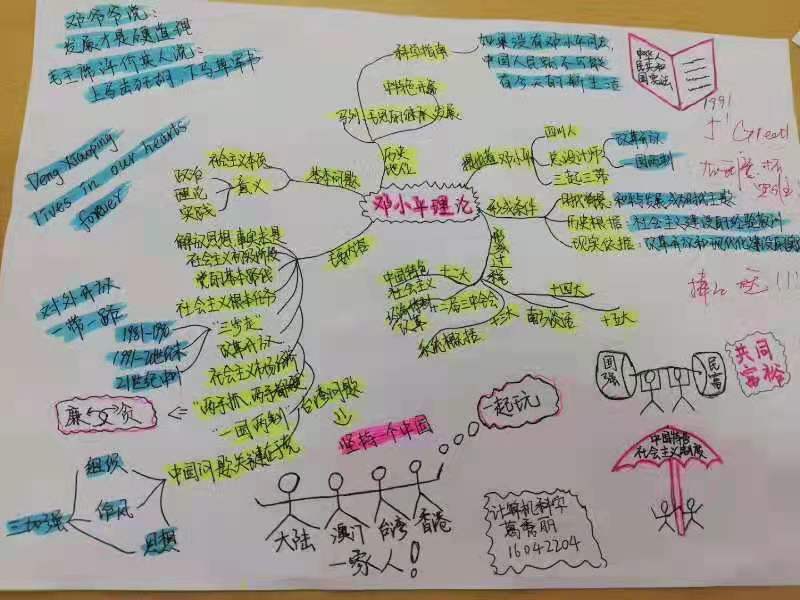 邓爷爷说：
发展才是硬道理
上马击狂胡，下马草军书
Deng Xiaoping
lives in our hearts
forever
科学指南
中国人民就不可能
有今天的新生活
中华人
民共和
国宪法
1991
Great
历史
地位
四川人
总设计师
三起三落
改革开放
一国两制
邓小平理论
形成条件
时代背景：和平与发展成为时代主题
历史根据：社会主义建设的经验教训
现实依据：改革开放和现代化建设
形成过程
社会主义本质
基本问题
政治
理论
实践
意义
解放思想，实事求是
党的基本路线
社会主义根本任务
"三步走"
改革开放
社会主义市场经济
"两手抓，两手都要硬"
"一国两制"
台湾问题
中国问题关键在党
对外开放
一带一路
1981-1990
1991-20世纪末
中国特色
社会主义
十二大
改革
十二届三中全会
十三大
系统概括
十四大
南方谈话
十五大
国强
民富
共同
富裕
坚持一个中国
一起玩
大陆 澳门 台湾 香港
一家人！
三加强
组织
作风
思想
中国特色
社会主义制度
计算机科学
葛秀明
16042204